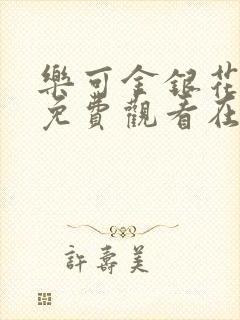 樂可金銀花
免費觀看在
許壽美